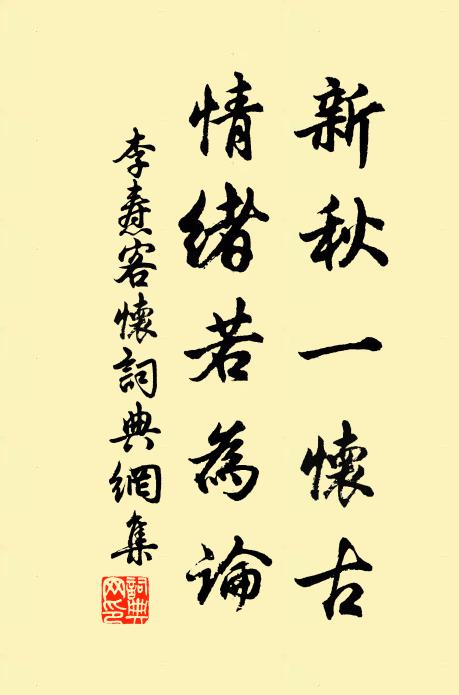 新秋一懷古
情緒若為論
李燾客懷詞典網集
詞典
网印